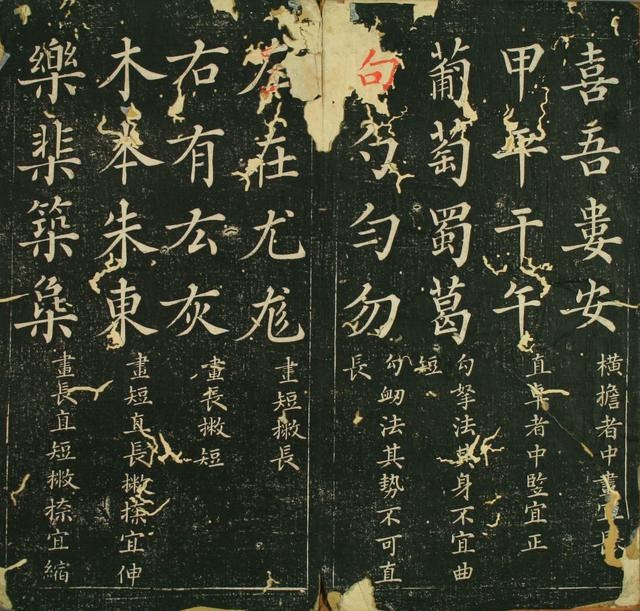 喜吾婁安
横擔者中畫宜長
甲平干午
直卓者中竪宜正
葡萄蜀葛
勾拏法其身不宜曲
短
句勺匀勿
勾衂法其勢不可直
長
左在尤尨
畫短撇長
右有厷灰
畫長撇短
木本朱東
畫短直長撇捺宜伸
樂棐築
畫長直短撇捺宜縮